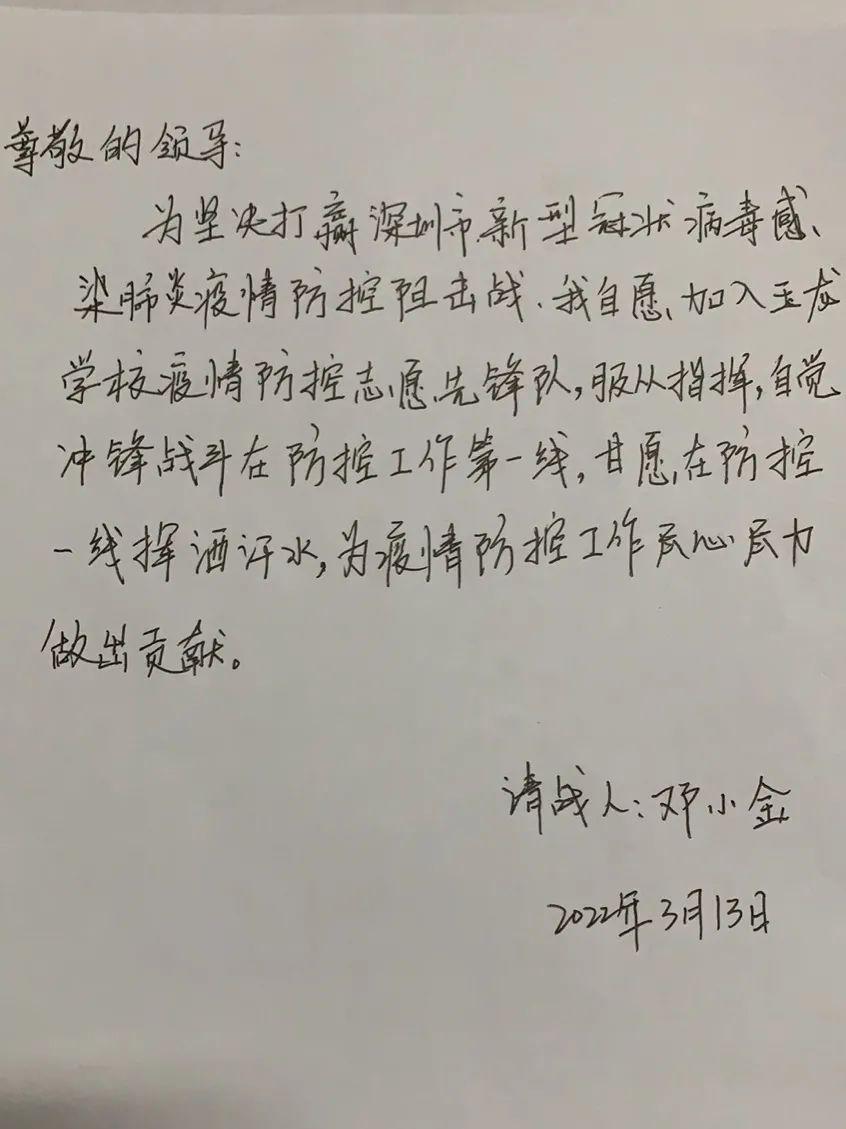 尊敬的领导:
为坚决打赢深圳市新型冠状病毒感
染肺炎疫情防控阻击战,我自愿加入玉龙
学校疫情防控志愿先锋队,服从指挥,自觉
冲锋战斗在防控工作第一线,甘愿在防控
一线挥洒汗水,为疫情防控工作尽心尽力
做出贡献。
请战人:邓小金
2022年3月13日